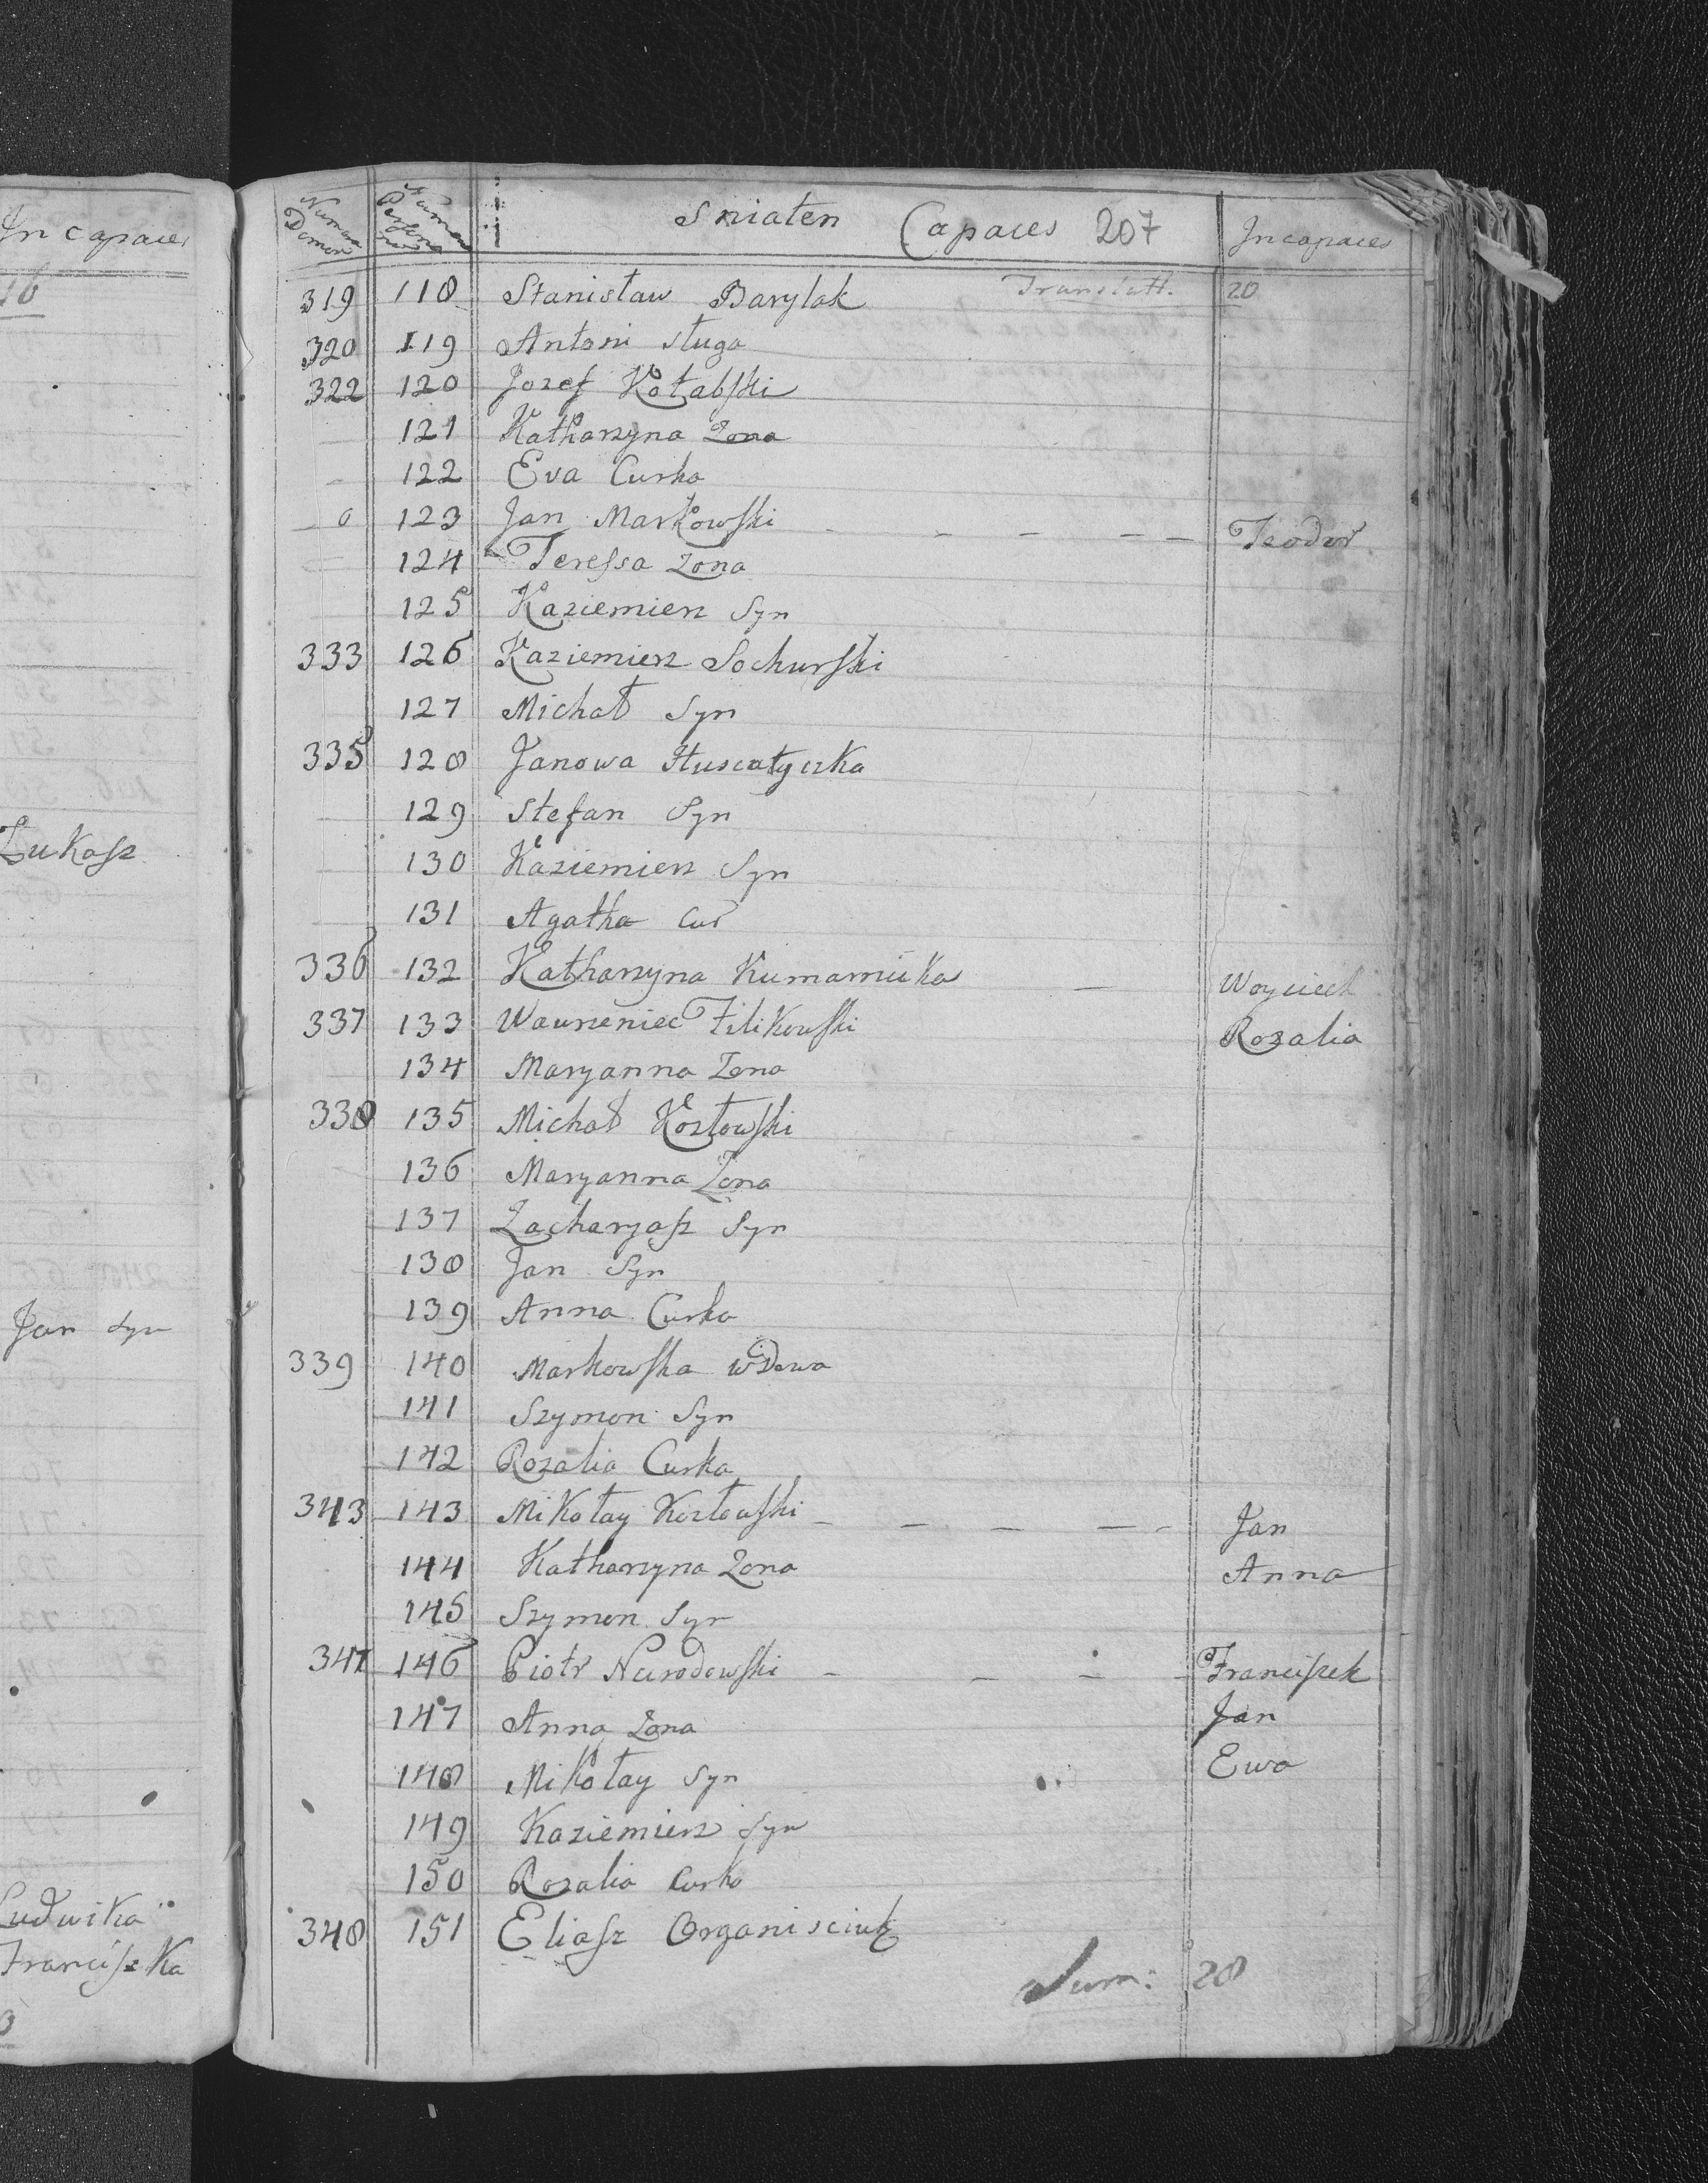 In capaces
16
Lukasz
Jan Syn
Ludwika
Franciszka
Numerus Domus
Numerus Personarum
Sniaten Capaces 207 Incapaces
319 118 Stanisław Barylak Translatt. 20
320 119 Antoni sługa
322 120 Jozef Kołabski
121 Katharzyna Zona
122 Eva Curka
0 123 Jan Markowski - - - - - Teodor
124 Teressa Zona
125 Kaziemierz Syn
333 126 Kaziemierz Sochurski
127 Michał Syn
335 128 Janowa Husiatyczka
129 Stefan Syn
130 Kaziemierz Syn
131 Agatha Cur
336 132 Katharzyna Kumarnicka - Woyciech
337 133 Wawrzeniec Filikowski Rozalia
134 Maryanna Zona
338 135 Michał Kozłowski
136 Maryanna Zona
137 Zacharyasz Syn
138 Jan Syn
139 Anna Curka
339 140 Markowska wdowa
141 Szymon Syn
142 Rozalia Curka
343 143 Mikołay Kozłowski - - - - - Jan
144 Katharzyna Zona Anna
145 Szymon Syn
347 146 Piotr Narodowski - - - - Franciszek
147 Anna Zona Jan
148 Mikołay Syn Ewa
149 Kaziemierz Syn
150 Rozalia Curka
348 151 Eliasz Organisciuk
Sum: 28